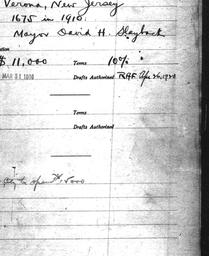 Verona, New Jersey
1675 in 1910.
Mayor David H. Slayback
$11,000 Terms 10%
MAR 31 1930 Drafts Authorized RAF Apr 26, 1930
Terms
Drafts Authorized
to open